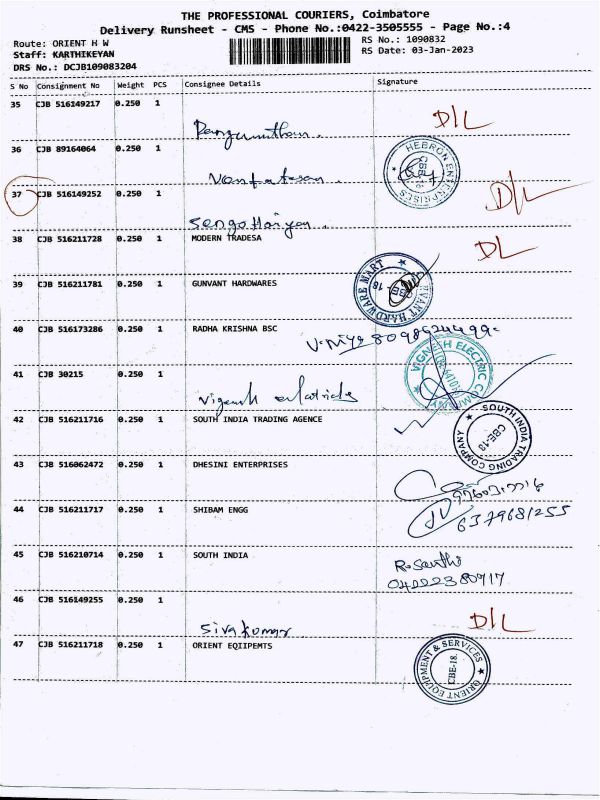 THE PROFESSIONAL COURIERS, Coimbatore
Delivery Runsheet - CMS - Phone No.:0422-3505555 - Page No.:4
Route: ORIENT H W
RS No.: 1090832
Staff: KARTHIKEYAN
RS Date: 03-Jan-2023
DRS No.: DCJB109083204
S No Consignment No Weight PCS Consignee Details Signature
35 CJB 516149217 0.250 1
D/L
36 CJB 89164064 0.250 1
HEBRON ENTERPRISES
Vankatesan
37 CJB 516149252 0.250 1
D/L
38 CJB 516211728 0.250 1 MODERN TRADESA
DL
39 CJB 516211781 0.250 1 GUNVANT HARDWARES
HARDWARE MART
40 CJB 516173286 0.250 1 RADHA KRISHNA BSC
41 CJB 30215 0.250 1
VIGANESH ELECTRIC COMPANY
42 CJB 516211716 0.250 1 SOUTH INDIA TRADING AGENCE
SOUTH INDIA TRADING COMPANY
CBE-18
43 CJB 516062472 0.250 1 DHESINI ENTERPRISES
44 CJB 516211717 0.250 1 SHIBAM ENGG
6379681255
45 CJB 516210714 0.250 1 SOUTH INDIA
R. Santhi
04222380917
46 CJB 516149255 0.250 1
Sivakumar
D/L
47 CJB 516211718 0.250 1 ORIENT EQIIPEMTS
ORIENT EQUIPMENT & SERVICES
CBE-18.